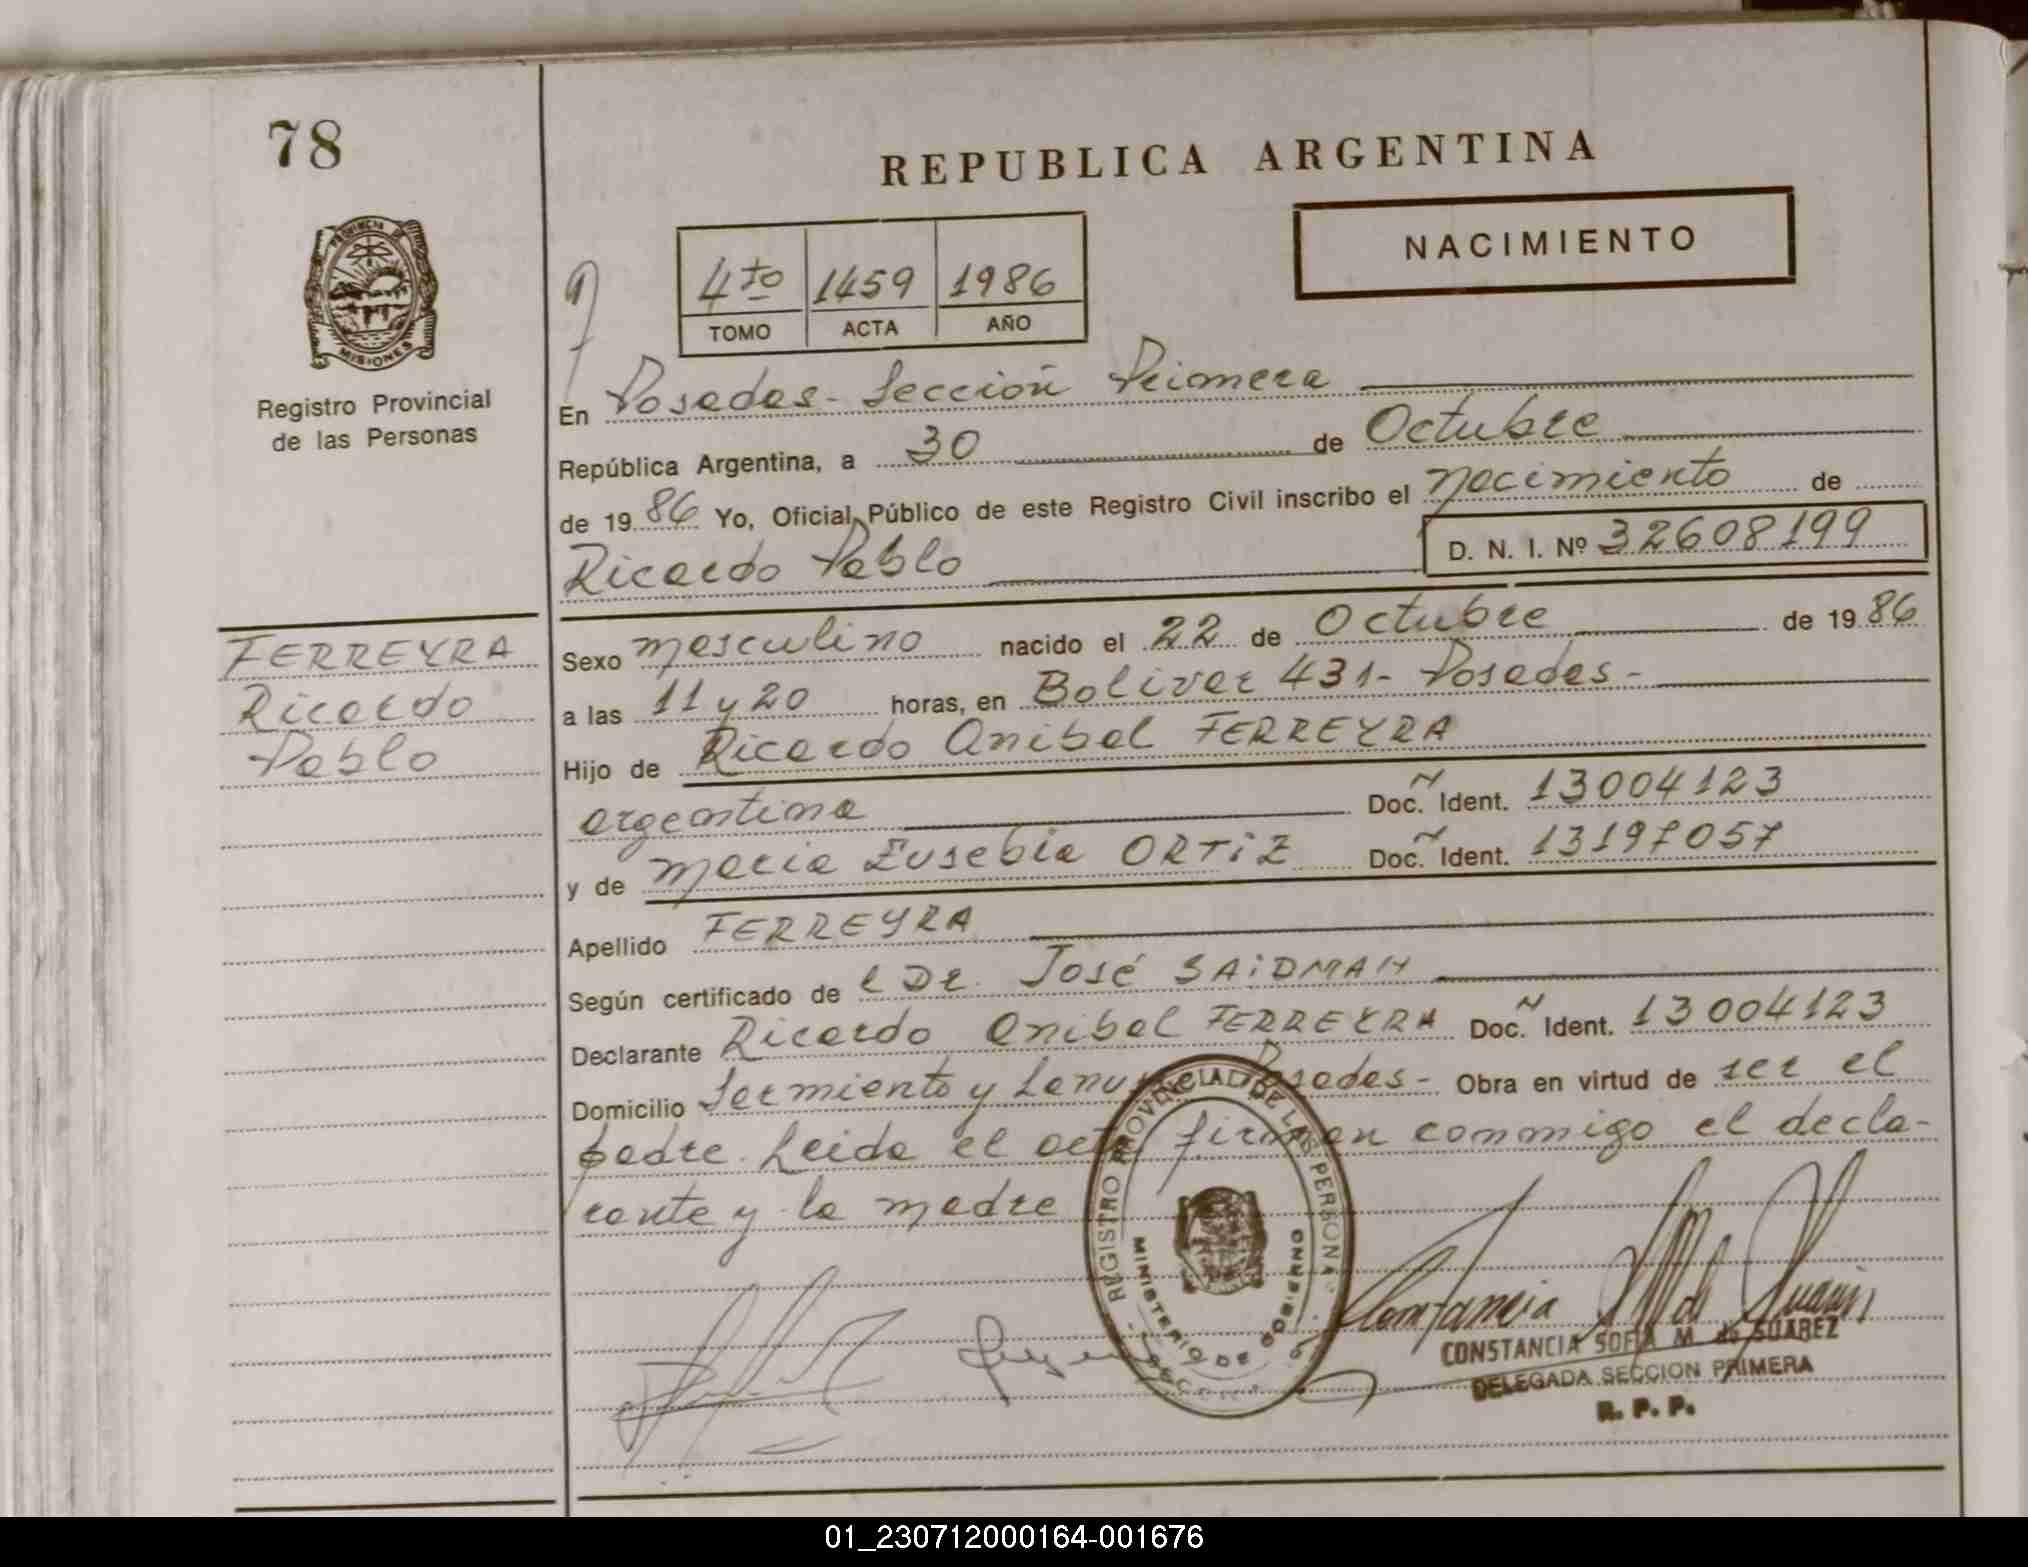 78
REPUBLICA ARGENTINA
NACIMIENTO
4to 1459 1986
TOMO ACTA AÑO
PROVINCIA DE
MISIONES
Registro Provincial
de las Personas
En Posadas - Sección Primera
República Argentina, a 30 de Octubre
de 1986 Yo, Oficial Público de este Registro Civil inscribo el nacimiento de
Ricardo Pablo D. N. I. Nº 32608199
FERREYRA
Ricardo
Pablo
Sexo masculino nacido el 22 de Octubre de 1986
a las 11 y 20 horas, en Bolivar 431 - Posadas -
Hijo de Ricardo Anibal FERREYRA
argentina Doc. Ident. 13004123
y de Maria Eusebia ORTiZ Doc. Ident. 13197057
Apellido FERREYRA
Según certificado de l Dr. José SAiDMAN
Declarante Ricardo Anibal FERREYRA Doc. Ident. 13004123
Domicilio Sarmiento y Posadas - Obra en virtud de ser el
padre. Leida el acta firman conmigo el decla-
rante y la madre
REGISTRO PROVINCIAL DE LAS PERSONAS
MINISTERIO DE GOBIERNO
CONSTANCIA SOFIA M. de SUAREZ
DELEGADA SECCION PRIMERA
R. P. P.
01_230712000164-001676